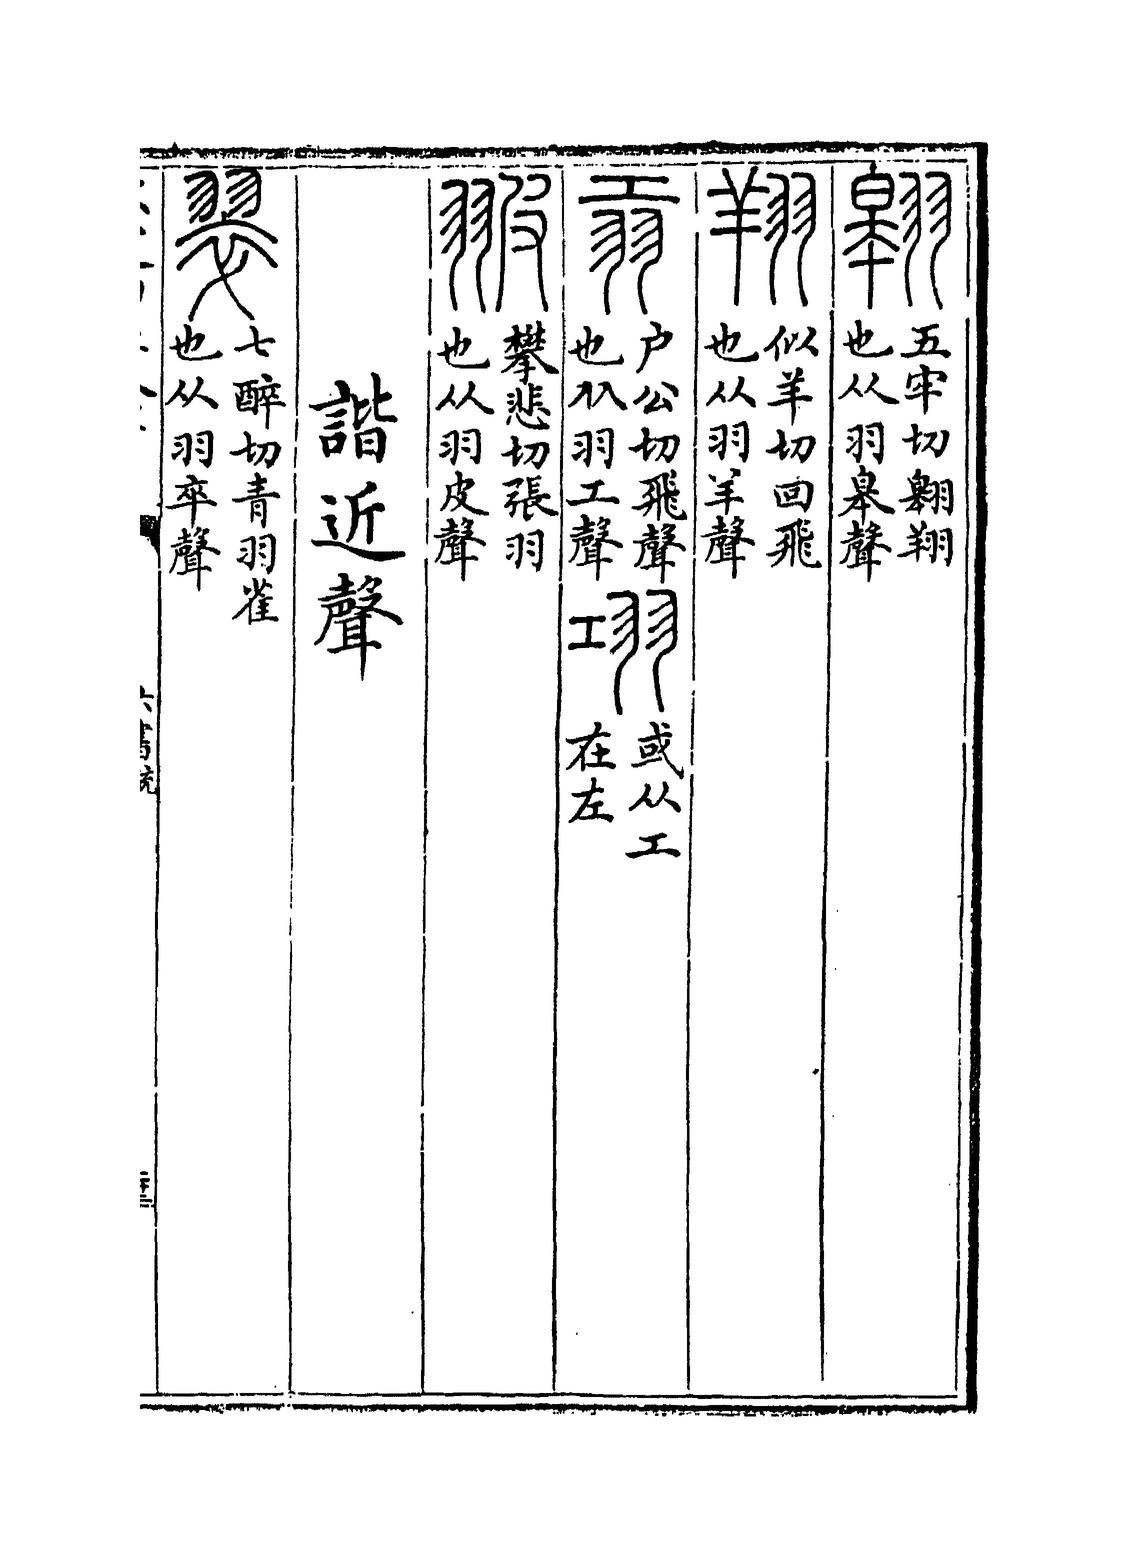 翺 五牢切翺翔
也从羽臯聲
翔 似羊切回飛
也从羽羊聲
翁 户公切飛聲
也从羽工聲
或从工
在左
翍 攀悲切張羽
也从羽皮聲
諧近聲
翠 七醉切青羽雀
也从羽卒聲
六書統